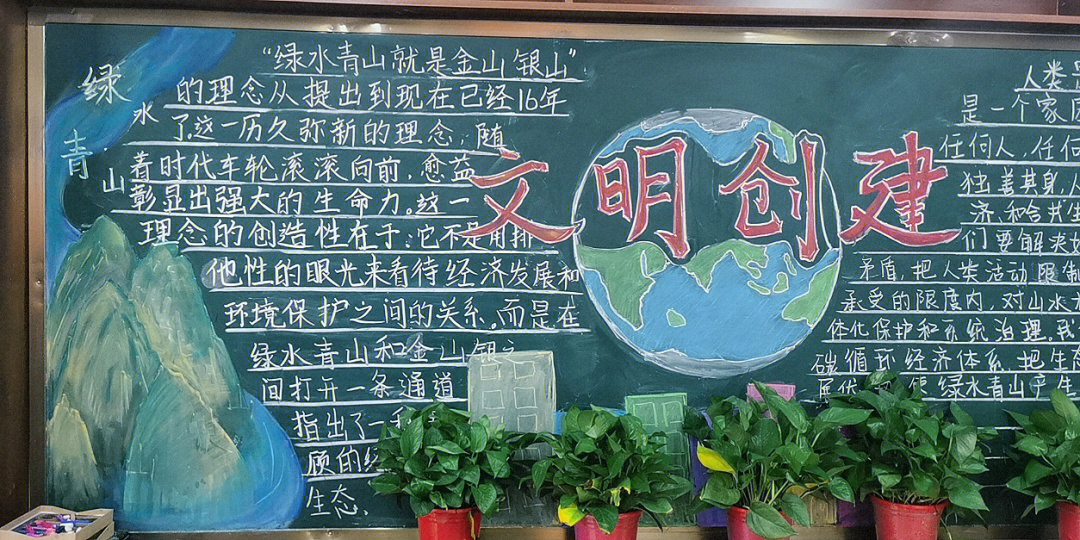 绿
水
青
山
“绿水青山就是金山银山”
的理念从提出到现在已经16年
了.这一历久弥新的理念,随
着时代车轮滚滚向前,愈益
彰显出强大的生命力。这一
理念的创造性在于:它不是用排
他性的眼光来看待经济发展和
环境保护之间的关系,而是在
绿水青山和金山银
间打开一条通道
指出了一
顾的
生态.
文明创建
人类
是一个家
任何人,任何
独善其身,人
济,和合共生
们要解决好
矛盾,把人类活动限制
承受的限度内,对山水
体化保护和系统治理.我
碳循环经济体系,把生态
绿水青山产生